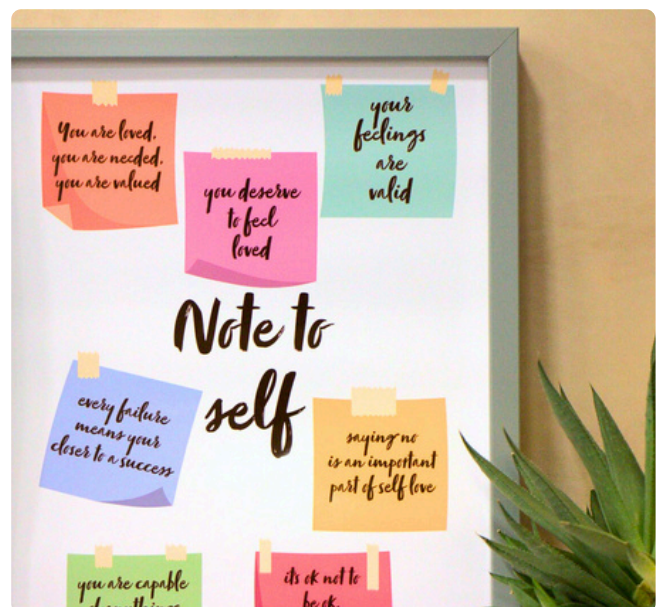 You are loved,
you are needed,
you are valued
you deserve
to feel
loved
your
feelings
are
valid
Note to
self
every failure
means your
closer to a success
saying no
is an important
part of self love
you are capable
its ok not to
be ok.